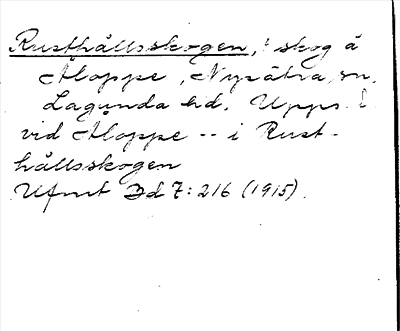 Rusthållsskogen, skog å
Åloppe, Nysätra sn,
Lagunda hd. Upps. l.
vid Åloppe -- i Rust-
hållsskogen
Ufmt Bd 7:216 (1915).